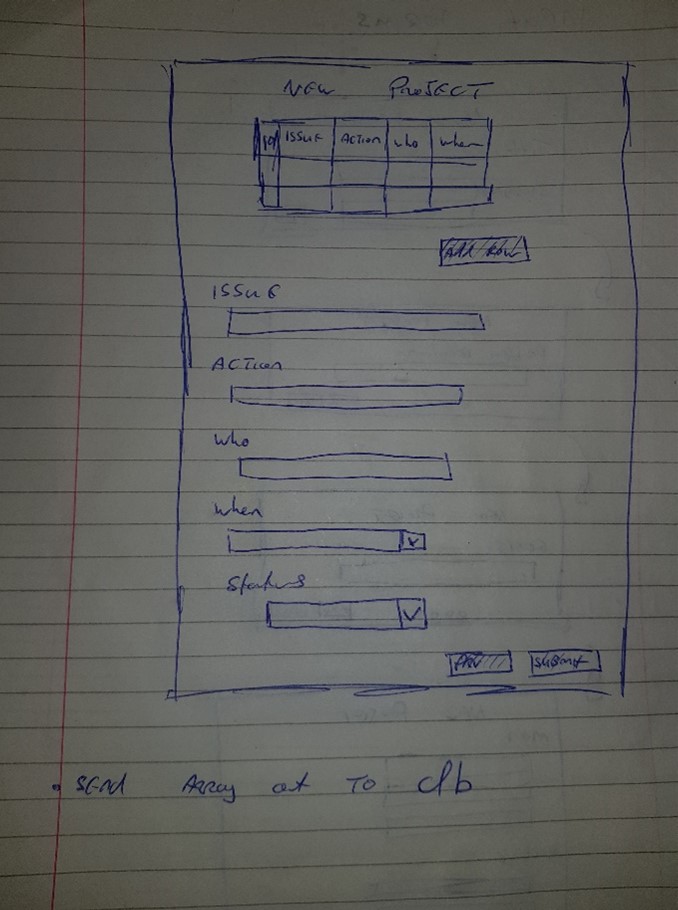 NEW PROJECT
ISSUE ACTION who when
Add Row
ISSUE
ACTION
who
when
Status
submit
SEND Array out To db